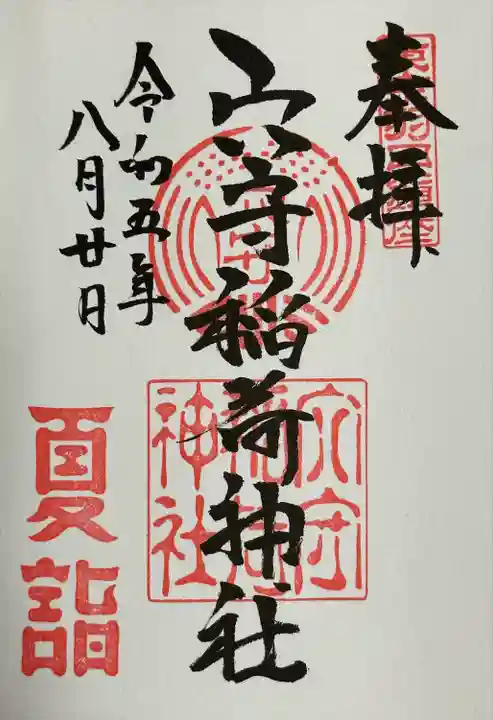 奉拝
穴守稲荷神社
穴守
稲荷
神社
令和五年
八月廿日
夏詣